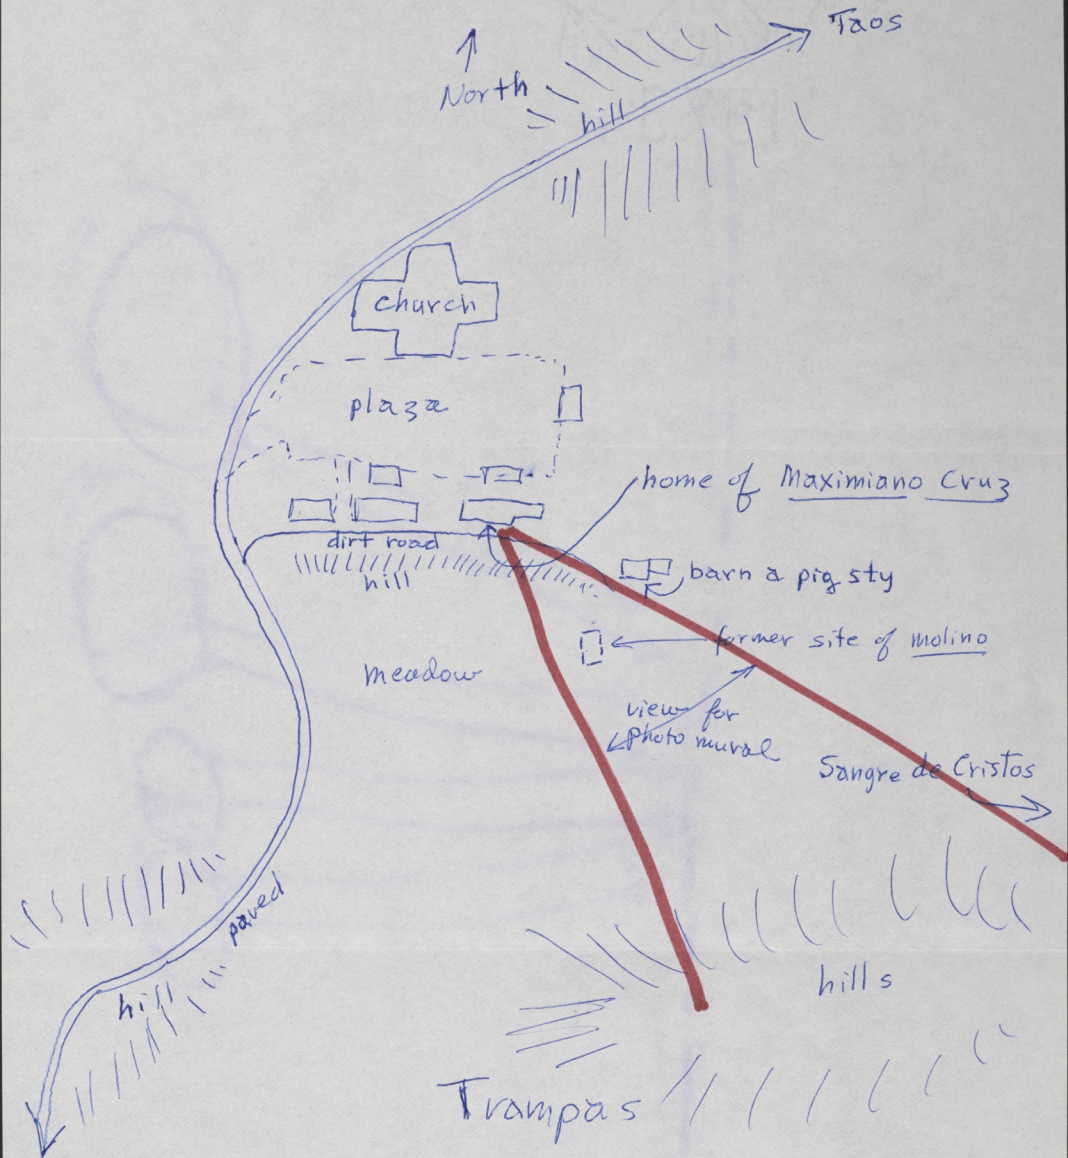 Taos
North
hill
church
plaza
home of Maximiano Cruz
dirt road
hill
barn & pig sty
former site of molino
meadow
view for
photo mural
Sangre de Cristos
paved
hill
hills
Trampas